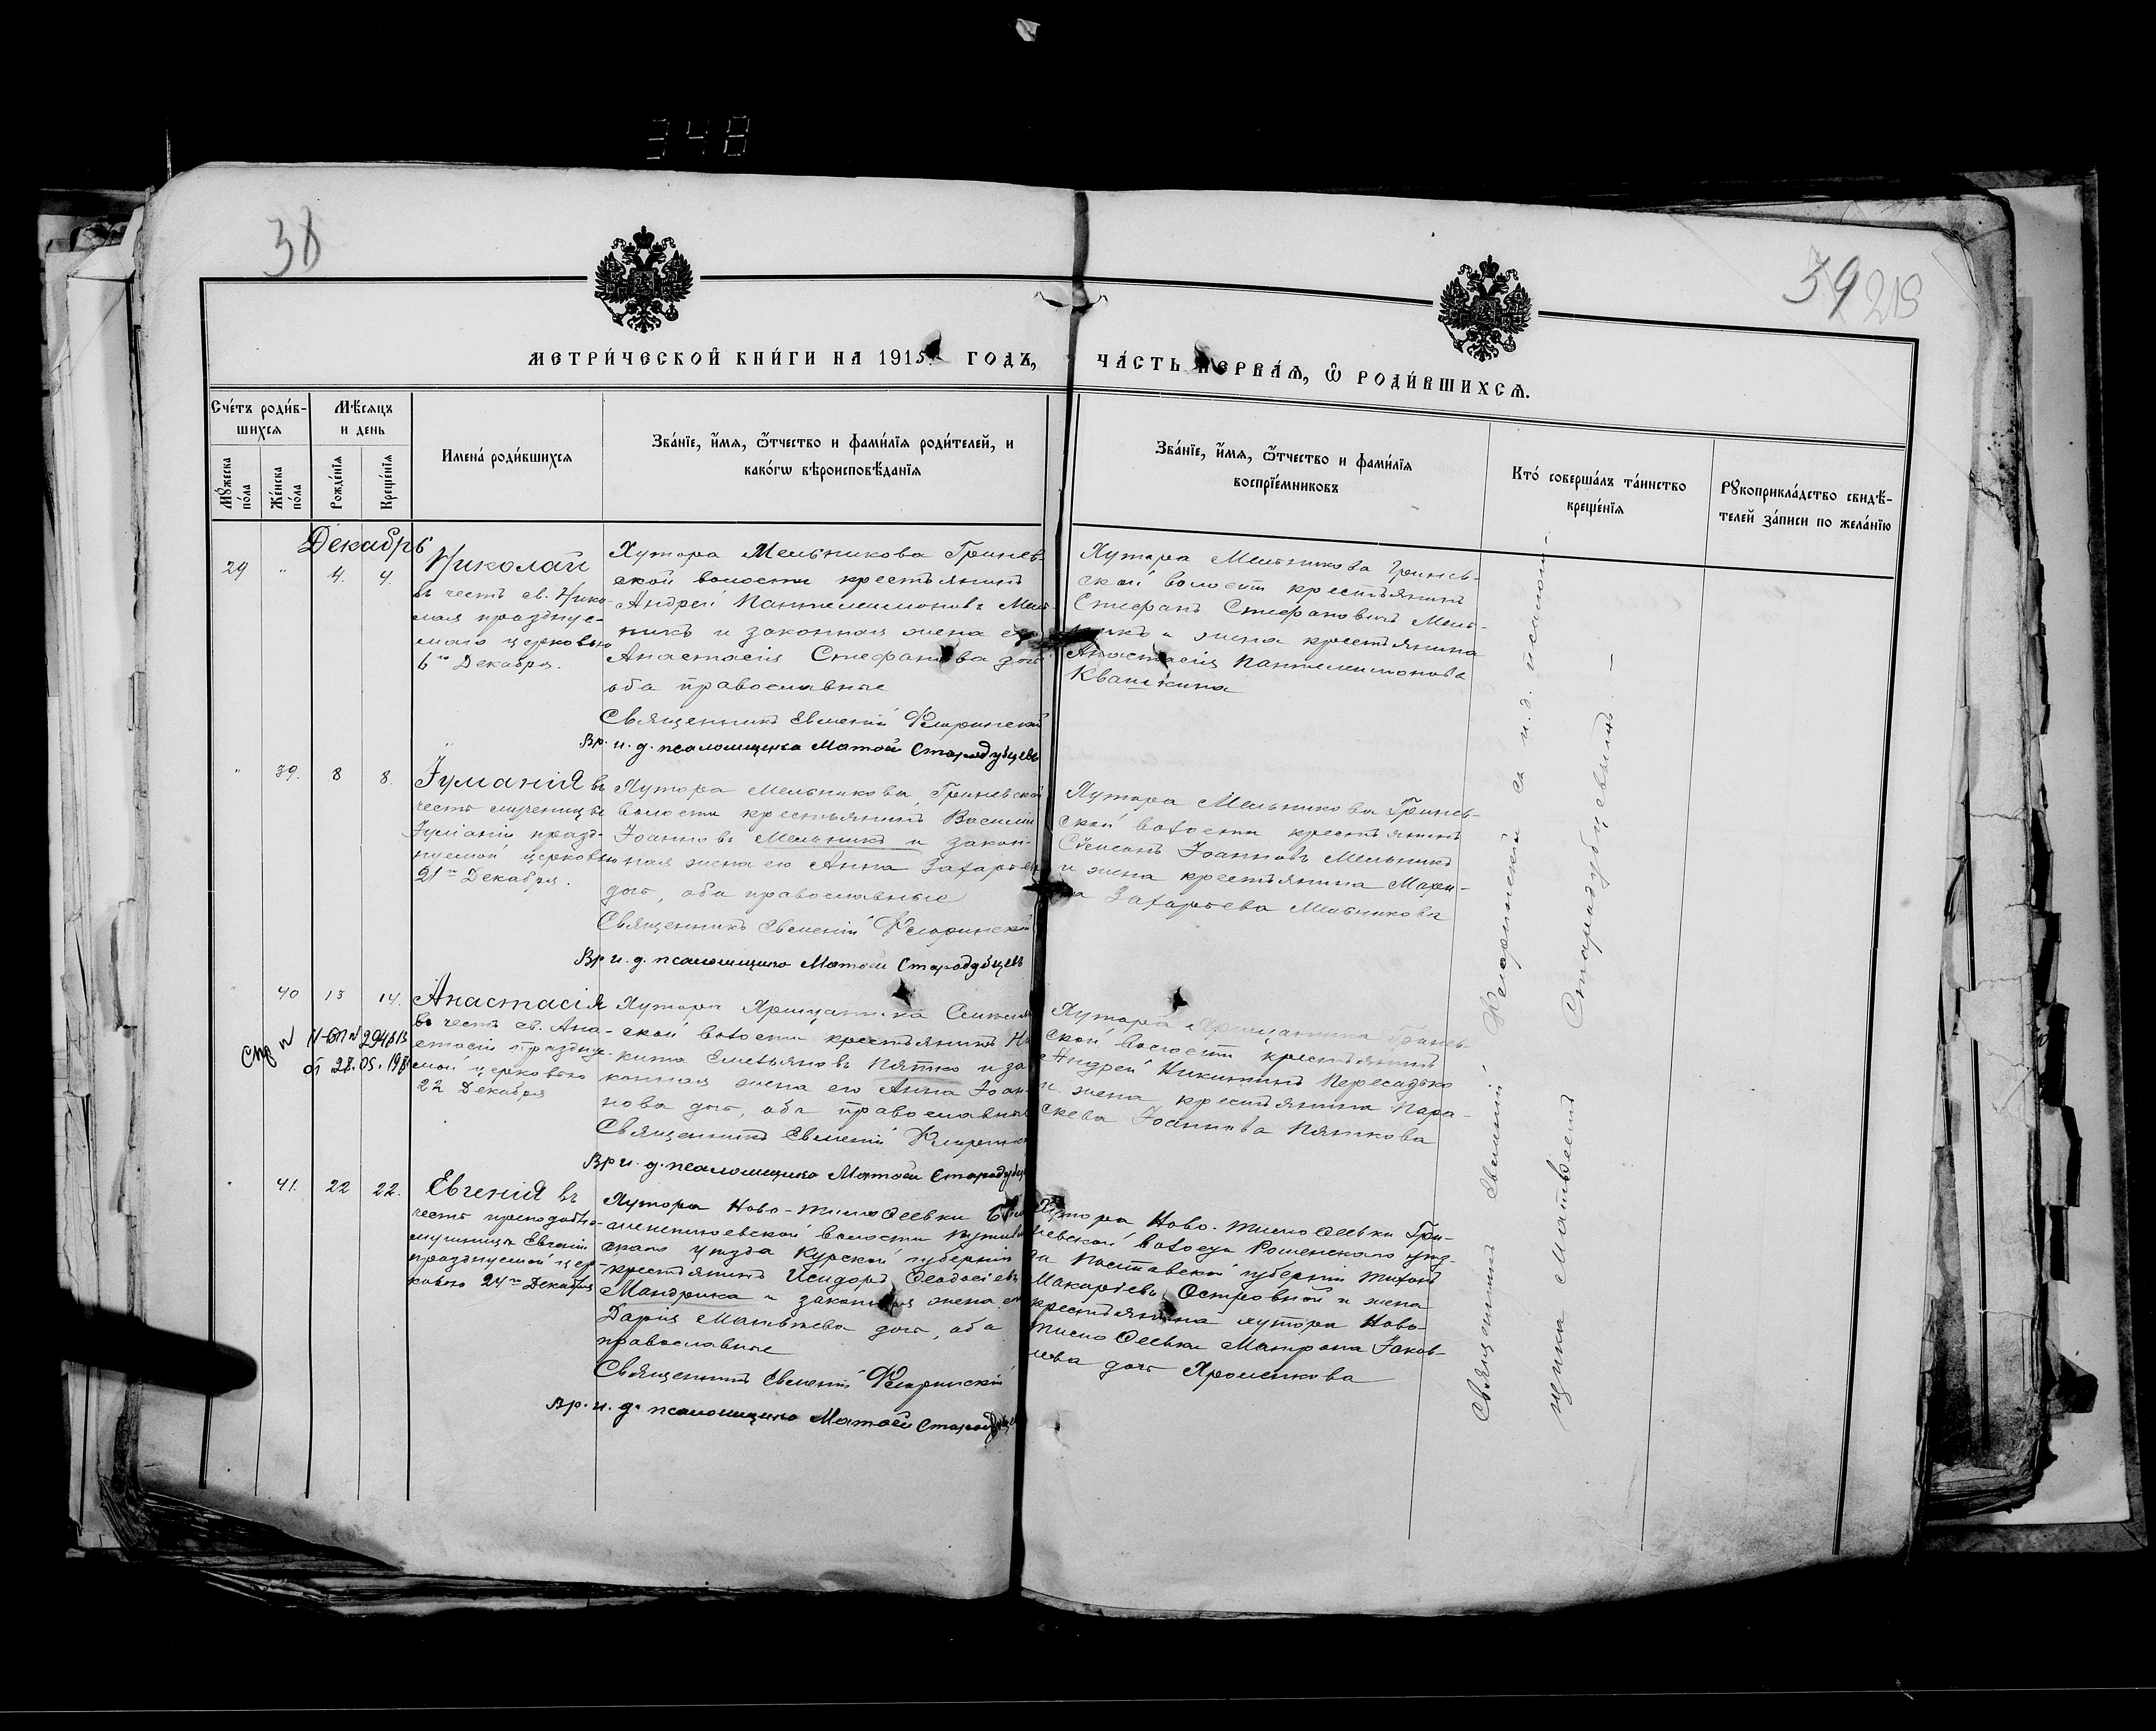 348
38
39 219
МЕТРИ́ЧЕСКОЙ КНИ́ГИ НА 1915 ГОДЪ,
ЧА́СТЬ ПЕРВА́Ѧ, Ѡ РОДИ́ВШИХСѦ.
Сче́тъ роди́в-
шихсѧ
Мѣ́сѧцъ
и день
Мꙋ́жеска
по́ла
Же́нска
по́ла
Рожде́нїѧ
Креще́нїѧ
Имена́ роди́вшихсѧ
Зва́нїе, и́мѧ, ѻ́тчество и фами́лїѧ роди́телей, и
како́гѡ вѣроисповѣ́данїѧ
Зва́нїе, и́мѧ, ѻ́тчество и фами́лїѧ
воспрїе́мниковъ
Кто́ соверша́лъ та́инство
креще́нїѧ
Рꙋкоприкла́дство свидѣ́-
телей за́писи по жела́нїю
Декабрь
29 " 4. 4.
Николай
въ честь св. Нико-
лая праздуе-
маго церковью
6го Декабря.
Хутора Мельникова Гринев-
ской волости крестьянинъ
Андрей Пантелеимоновъ Мель-
никъ и законная жена его
Анастасія Стефанова дочь
оба православные
Священникъ Евмений Флоринский
Вр. и. д. псаломщика Матѳей Стародубцевъ
Хутора Мельникова Гринев-
ской волости крестьянинъ
Стефанъ Стефановичъ Мель-
никъ и жена крестьянина
Анастасія Пантелеимонова
Квашкина
" 39. 8 8.
Іуліанія въ
честь мученицы
Іуліаніи празд-
нуемой церковью
21го Декабря.
Хутора Мельникова, Гриневской
волости крестьянинъ Василій
Іоанновъ Мельникъ и закон-
ная жена его Анна Захарьева
дочь, оба православные
Священникъ Евмений Флоринский
Вр и. д. псаломщика Матѳей Стародубцевъ
Хутора Мельникова Гринев-
ской волости крестьянинъ
Сѵмеонъ Іоанновъ Мельникъ
и жена крестьянина
Захарьева Мельникова
" 40 13 14.
Анастасія
въ честь св. Ана-
стасіи праздну-
емой церковью
22 Декабря
от 28.05.
Хутора Хрещатика
ской волости крестьянинъ Ни-
кита Емельяновъ Пятко и за-
конная жена его Анна Іоан-
нова дочь, оба православные
Священникъ Евмений
Вр и. д. псаломщика Матѳей Стародубц
Хутора Хрещатика Гринев-
ской волости крестьянинъ
Андрей Никитинъ Пересадько
и жена крестьянина Пара-
скева Іоаннова Пяткова
" 41. 22 22.
Евгенія въ
честь преподобно-
мученицы Евгеніи
празднуемой цер-
ковью 24го Декабря
Хутора Ново-Тимоѳеевки
волости Путивль
скаго уѣзда Курской губерніи
крестьянинъ Исидоръ Ѳеодосіевъ
Мандрика и законная жена его
Дарія Матвѣева дочь, оба
православные
Священникъ Евмений Флоринский
Вр. и. д. псаломщика Матѳей Стародубцев
Хутора Ново-Тимоѳеевки Гри-
невской волости Роменскаго уѣз-
да Полтавской губерніи Тихонъ
Макарьевъ Островной и жена
крестьянина хутора Ново-
Тимоѳеевки Матрона Іаков-
лева дочь Хроменкова
Священникъ Евмений Флоринский съ и. д. псалом-
щика Матвѣемъ Стародубцевымъ. —